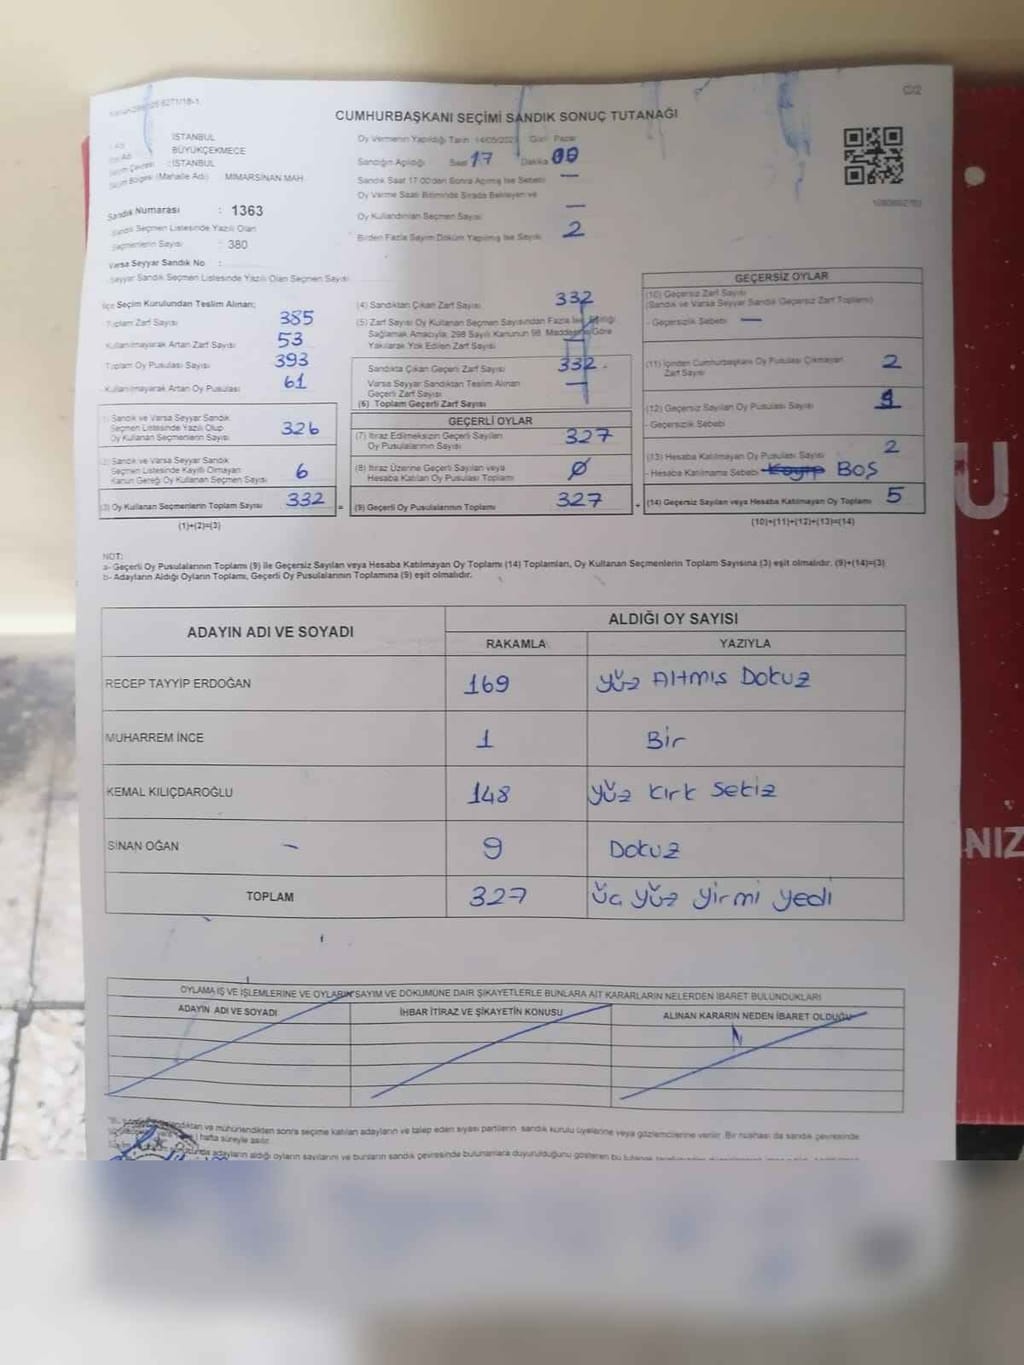 C/2
CUMHURBAŞKANI SEÇİMİ SANDIK SONUÇ TUTANAĞI
İSTANBUL
BÜYÜKÇEKMECE
: İSTANBUL
Seçim Bölgesi (Mahalle Adı) MİMARSİNAN MAH.
Sandık Numarası : 1363
Sandık Seçmen Listesinde Yazılı Olan
Seçmenlerin Sayısı : 380
Varsa Seyyar Sandık No :
Seyyar Sandık Seçmen Listesinde Yazılı Olan Seçmen Sayısı
Oy Vermenin Yapıldığı Tarih Gün: Pazar
Sandığın Açıldığı Saat 17 Dakika 00
Sandık Saat 17.00'dan Sonra Açılmış İse Sebebi —
Oy Verme Saati Bitiminde Sırada Bekleyen ve
Oy Kullandırılan Seçmen Sayısı —
Birden Fazla Sayım Döküm Yapılmış İse Sayısı 2
İlçe Seçim Kurulundan Teslim Alınan;
Toplam Zarf Sayısı 385
Kullanılmayarak Artan Zarf Sayısı 53
Toplam Oy Pusulası Sayısı 393
Kullanılmayarak Artan Oy Pusulası 61
(1) Sandık ve Varsa Seyyar Sandık
Seçmen Listesinde Yazılı Olup
Oy Kullanan Seçmenlerin Sayısı 326
(2) Sandık ve Varsa Seyyar Sandık
Seçmen Listesinde Kayıtlı Olmayan
Kanun Gereği Oy Kullanan Seçmen Sayısı 6
(3) Oy Kullanan Seçmenlerin Toplam Sayısı 332 =
(1)+(2)=(3)
(4) Sandıktan Çıkan Zarf Sayısı 332
(5) Zarf Sayısı Oy Kullanan Seçmen Sayısından Fazla İse Eşitliği
Sağlamak Amacıyla; 298 Sayılı Kanunun 98. Maddesine Göre
Yakılarak Yok Edilen Zarf Sayısı
Sandıkta Çıkan Geçerli Zarf Sayısı 332
Varsa Seyyar Sandıktan Teslim Alınan
Geçerli Zarf Sayısı —
(6) Toplam Geçerli Zarf Sayısı
GEÇERLİ OYLAR
(7) İtiraz Edilmeksizin Geçerli Sayılan
Oy Pusulalarının Sayısı 327
(8) İtiraz Üzerine Geçerli Sayılan veya
Hesaba Katılan Oy Pusulası Toplamı Ø
(9) Geçerli Oy Pusulalarının Toplamı 327 +
GEÇERSİZ OYLAR
(10) Geçersiz Zarf Sayısı
(Sandık ve Varsa Seyyar Sandık Geçersiz Zarf Toplamı)
- Geçersizlik Sebebi —
(11) İçinden Cumhurbaşkanı Oy Pusulası Çıkmayan
Zarf Sayısı 2
(12) Geçersiz Sayılan Oy Pusulası Sayısı 1
- Geçersizlik Sebebi
(13) Hesaba Katılmayan Oy Pusulası Sayısı 2
- Hesaba Katılmama Sebebi Kayıp BOŞ
(14) Geçersiz Sayılan veya Hesaba Katılmayan Oy Toplamı 5
(10)+(11)+(12)+(13)=(14)
NOT:
a- Geçerli Oy Pusulalarının Toplamı (9) ile Geçersiz Sayılan veya Hesaba Katılmayan Oy Toplamı (14) Toplamları, Oy Kullanan Seçmenlerin Toplam Sayısına (3) eşit olmalıdır. (9)+(14)=(3)
b- Adayların Aldığı Oyların Toplamı, Geçerli Oy Pusulalarının Toplamına (9) eşit olmalıdır.
ADAYIN ADI VE SOYADI
ALDIĞI OY SAYISI
RAKAMLA YAZIYLA
RECEP TAYYİP ERDOĞAN 169 yüz Altmış Dokuz
MUHARREM İNCE 1 Bir
KEMAL KILIÇDAROĞLU 148 yüz kırk sekiz
SİNAN OĞAN - 9 Dokuz
TOPLAM 327 üç yüz yirmi yedi
OYLAMA İŞ VE İŞLEMLERİNE VE OYLARIN SAYIM VE DÖKÜMÜNE DAİR ŞİKAYETLERLE BUNLARA AİT KARARLARIN NELERDEN İBARET BULUNDUKLARI
ADAYIN ADI VE SOYADI İHBAR İTİRAZ VE ŞİKAYETİN KONUSU ALINAN KARARIN NEDEN İBARET OLDUĞU
ve mühürlendikten sonra seçime katılan adayların ve talep eden siyasi partilerin sandık kurulu üyelerine veya gözlemcilerine verilir. Bir nüshası da sandık çevresinde
hafta süreyle asılır.
adayların aldığı oyların sayılarını ve bunların sandık çevresinde bulunanlara duyurulduğunu gösteren bu tutanak
U
NIZ